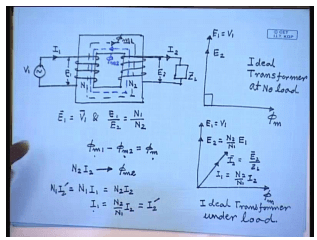 I₁
I₂
V₁
E₁
N₁
N₂
E₂
Z₂
E₁ = V₁
E₂
Ideal
Transformer
at No load
φₘ
Ē₁ = V̄₁ & E₁/E₂ = N₁/N₂
φₘ₁ - φₘ₂ = φₘ
N₂ I₂ → φₘ₂
N₁I₂' = N₁ I₁ = N₂ I₂
I₁ = N₂/N₁ I₂ = I₂'
E₁ = V₁
E₂ = N₂/N₁ E₁
I₂ = Ē₂/Z₂
I₁ = N₂/N₁ I₂
φₘ
Ideal Transformer
under load